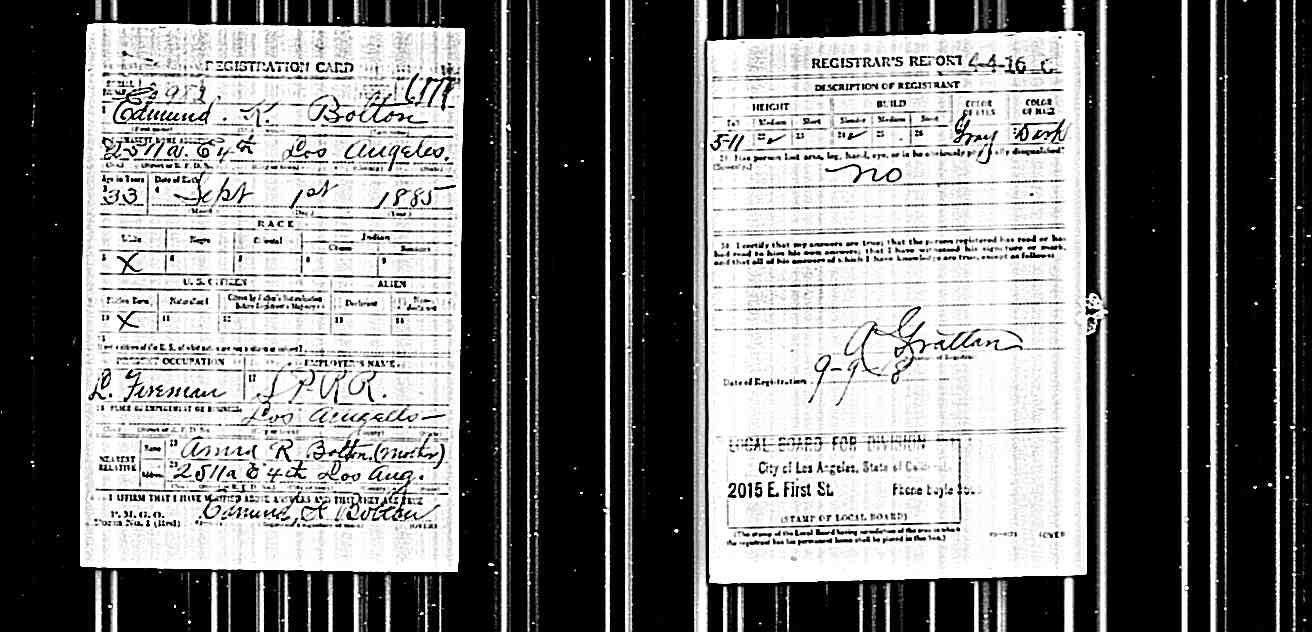 REGISTRATION CARD
Edmund K. Bolton
2511a E 4th Los Angeles.
Age in Years
Date of Birth
33 Sept 1st 1885
(Year)
RACE
White Negro Oriental Indian
5 X 6 7 8 9
U. S. CITIZEN ALIEN
Native Born Naturalized Declarant
10 X 11 12 13 14
PRESENT OCCUPATION EMPLOYER'S NAME
L. Fireman 17 S P R R.
18 PLACE OF EMPLOYMENT OR BUSINESS
Los Angeles
NEAREST RELATIVE
Name 19 R Bolton (Mother)
Address 20 2511a E 4th Los Ang.
I AFFIRM THAT I HAVE VERIFIED ABOVE ANSWERS AND THAT THEY ARE TRUE
P. M. G. O.
Form No. 1 (Red)
Edmund K Bolton
(OVER)
REGISTRAR'S REPORT 4-4-16 C
DESCRIPTION OF REGISTRANT
HEIGHT BUILD COLOR OF EYES COLOR OF HAIR
Tall Medium Short Slender Medium Stout
5-11 22 23 24 25 26 Gray Dark
Has person lost arm, leg, hand, eye, or is he obviously physically disqualified?
(Specify.)
no
30 I certify that my answers are true; that the person registered has read or has
had read to him his own answers; that I have witnessed his signature or mark,
and that all of his answers of which I have knowledge are true, except as follows:
A Grattan
Date of Registration 9-9 8
LOCAL BOARD FOR DIVISION
City of Los Angeles, State of
2015 E. First St. Phone Boyle
(STAMP OF LOCAL BOARD)
(The stamp of the Local Board having jurisdiction of the area in which
the registrant has his permanent home shall be placed in this box.)
(OVER)